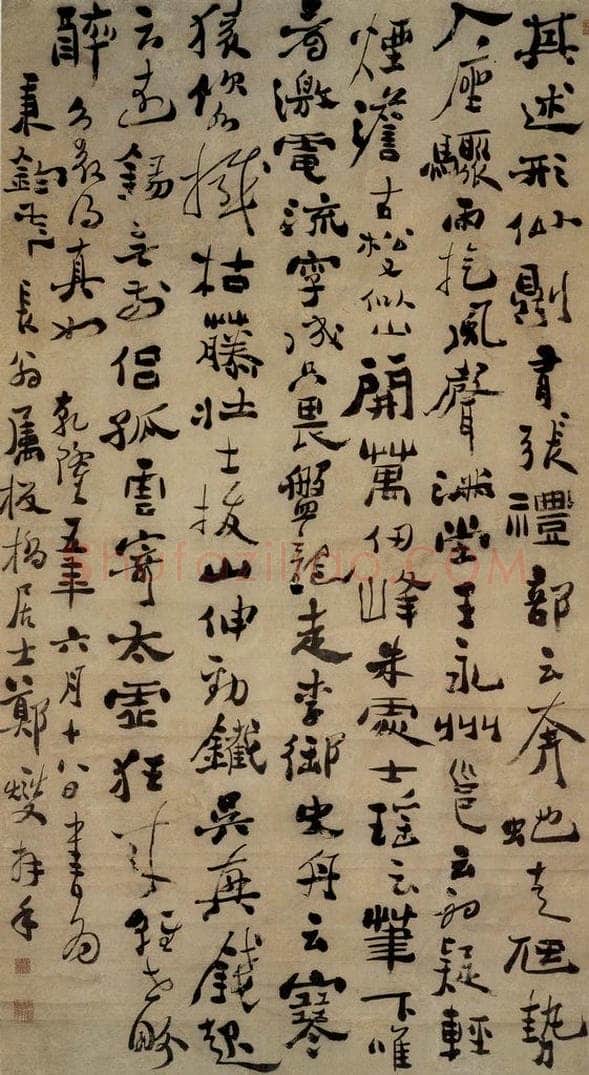 其述形似則有張禮部云奔蛇走虺勢
入座驟雨旋風聲滿堂王永州邕云初疑輕
煙澹古松又似山開萬仞峰朱處士瑤云筆下唯
看激電流字成只畏盤龍走李御史舟云寒
猿飲水撼枯藤壯士拔山伸勁鐵吳興錢起
云遠錫無前侶孤雲寄太虛狂來輕世界
醉裏得真如 乾隆五年六月十八日書為
秉鈞長翁屬板橋居士鄭燮拜手